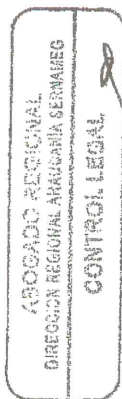 ABOGADO REGIONAL
DIRECCION REGIONAL ARAUCANIA SERNAMEG
CONTROL LEGAL